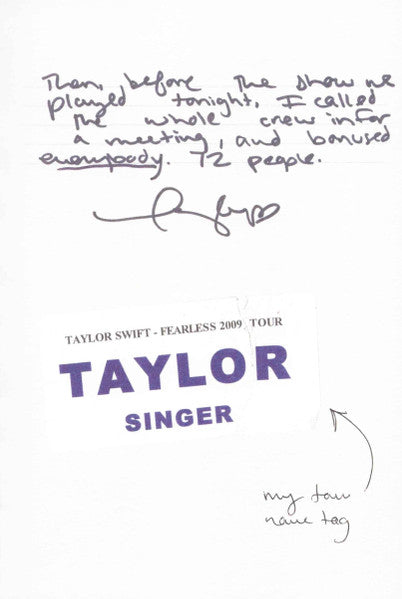 Then, before the show we
played tonight, I called
the whole crew in for
a meeting, and bonused
everybody. 72 people.
Taylor
TAYLOR SWIFT - FEARLESS 2009 TOUR
TAYLOR
SINGER
my tour
name tag